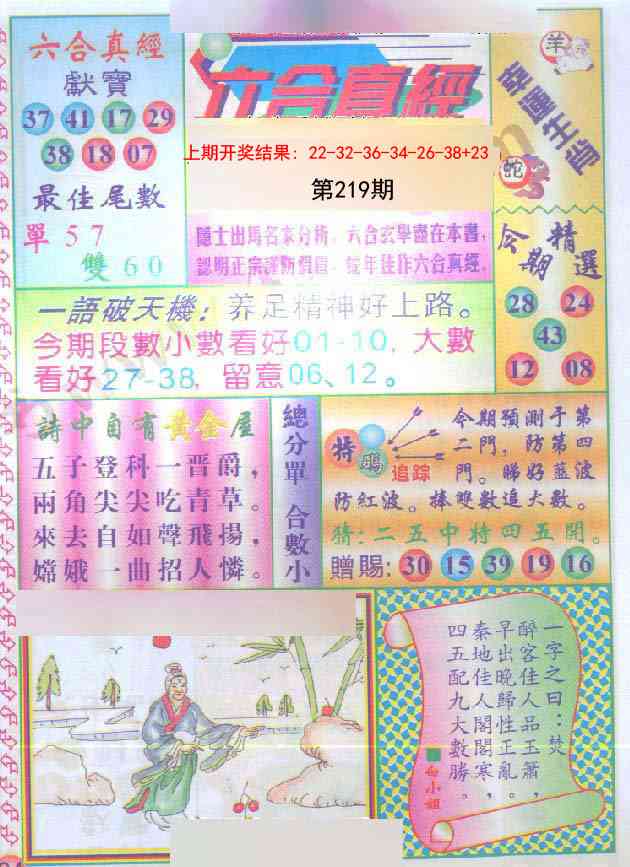 六合真經
獻寶
37 41 17 29
38 18 07
最佳尾數
單57
雙60
六合真經
上期开奖结果: 22-32-36-34-26-38+23
第219期
隱士出馬名家分析,六合玄學盡在本書,
認明正宗謹防假冒,每年佳作六合真經.
羊
幸運生肖
蛇
今期精選
28 24
43
12 08
一語破天機:养足精神好上路。
今期段數小數看好01-10,大數
看好27-38,留意06、12。
詩中自有黃金屋
五子登科一晋爵,
兩角尖尖吃青草。
來去自如聲飛揚,
嫦娥一曲招人憐。
總分單 合數小
特碼
追踪
今期預測于第
二門,防第四
門。睇好藍波
防紅波。棒雙數追大數。
猜:二五中特四五開。
贈賜:30 15 39 19 16
一字之曰:焚
醉客佳人品玉簫,
早出晚歸性正亂,
秦地佳人閣閣寒。
四五配九大數勝
白小姐